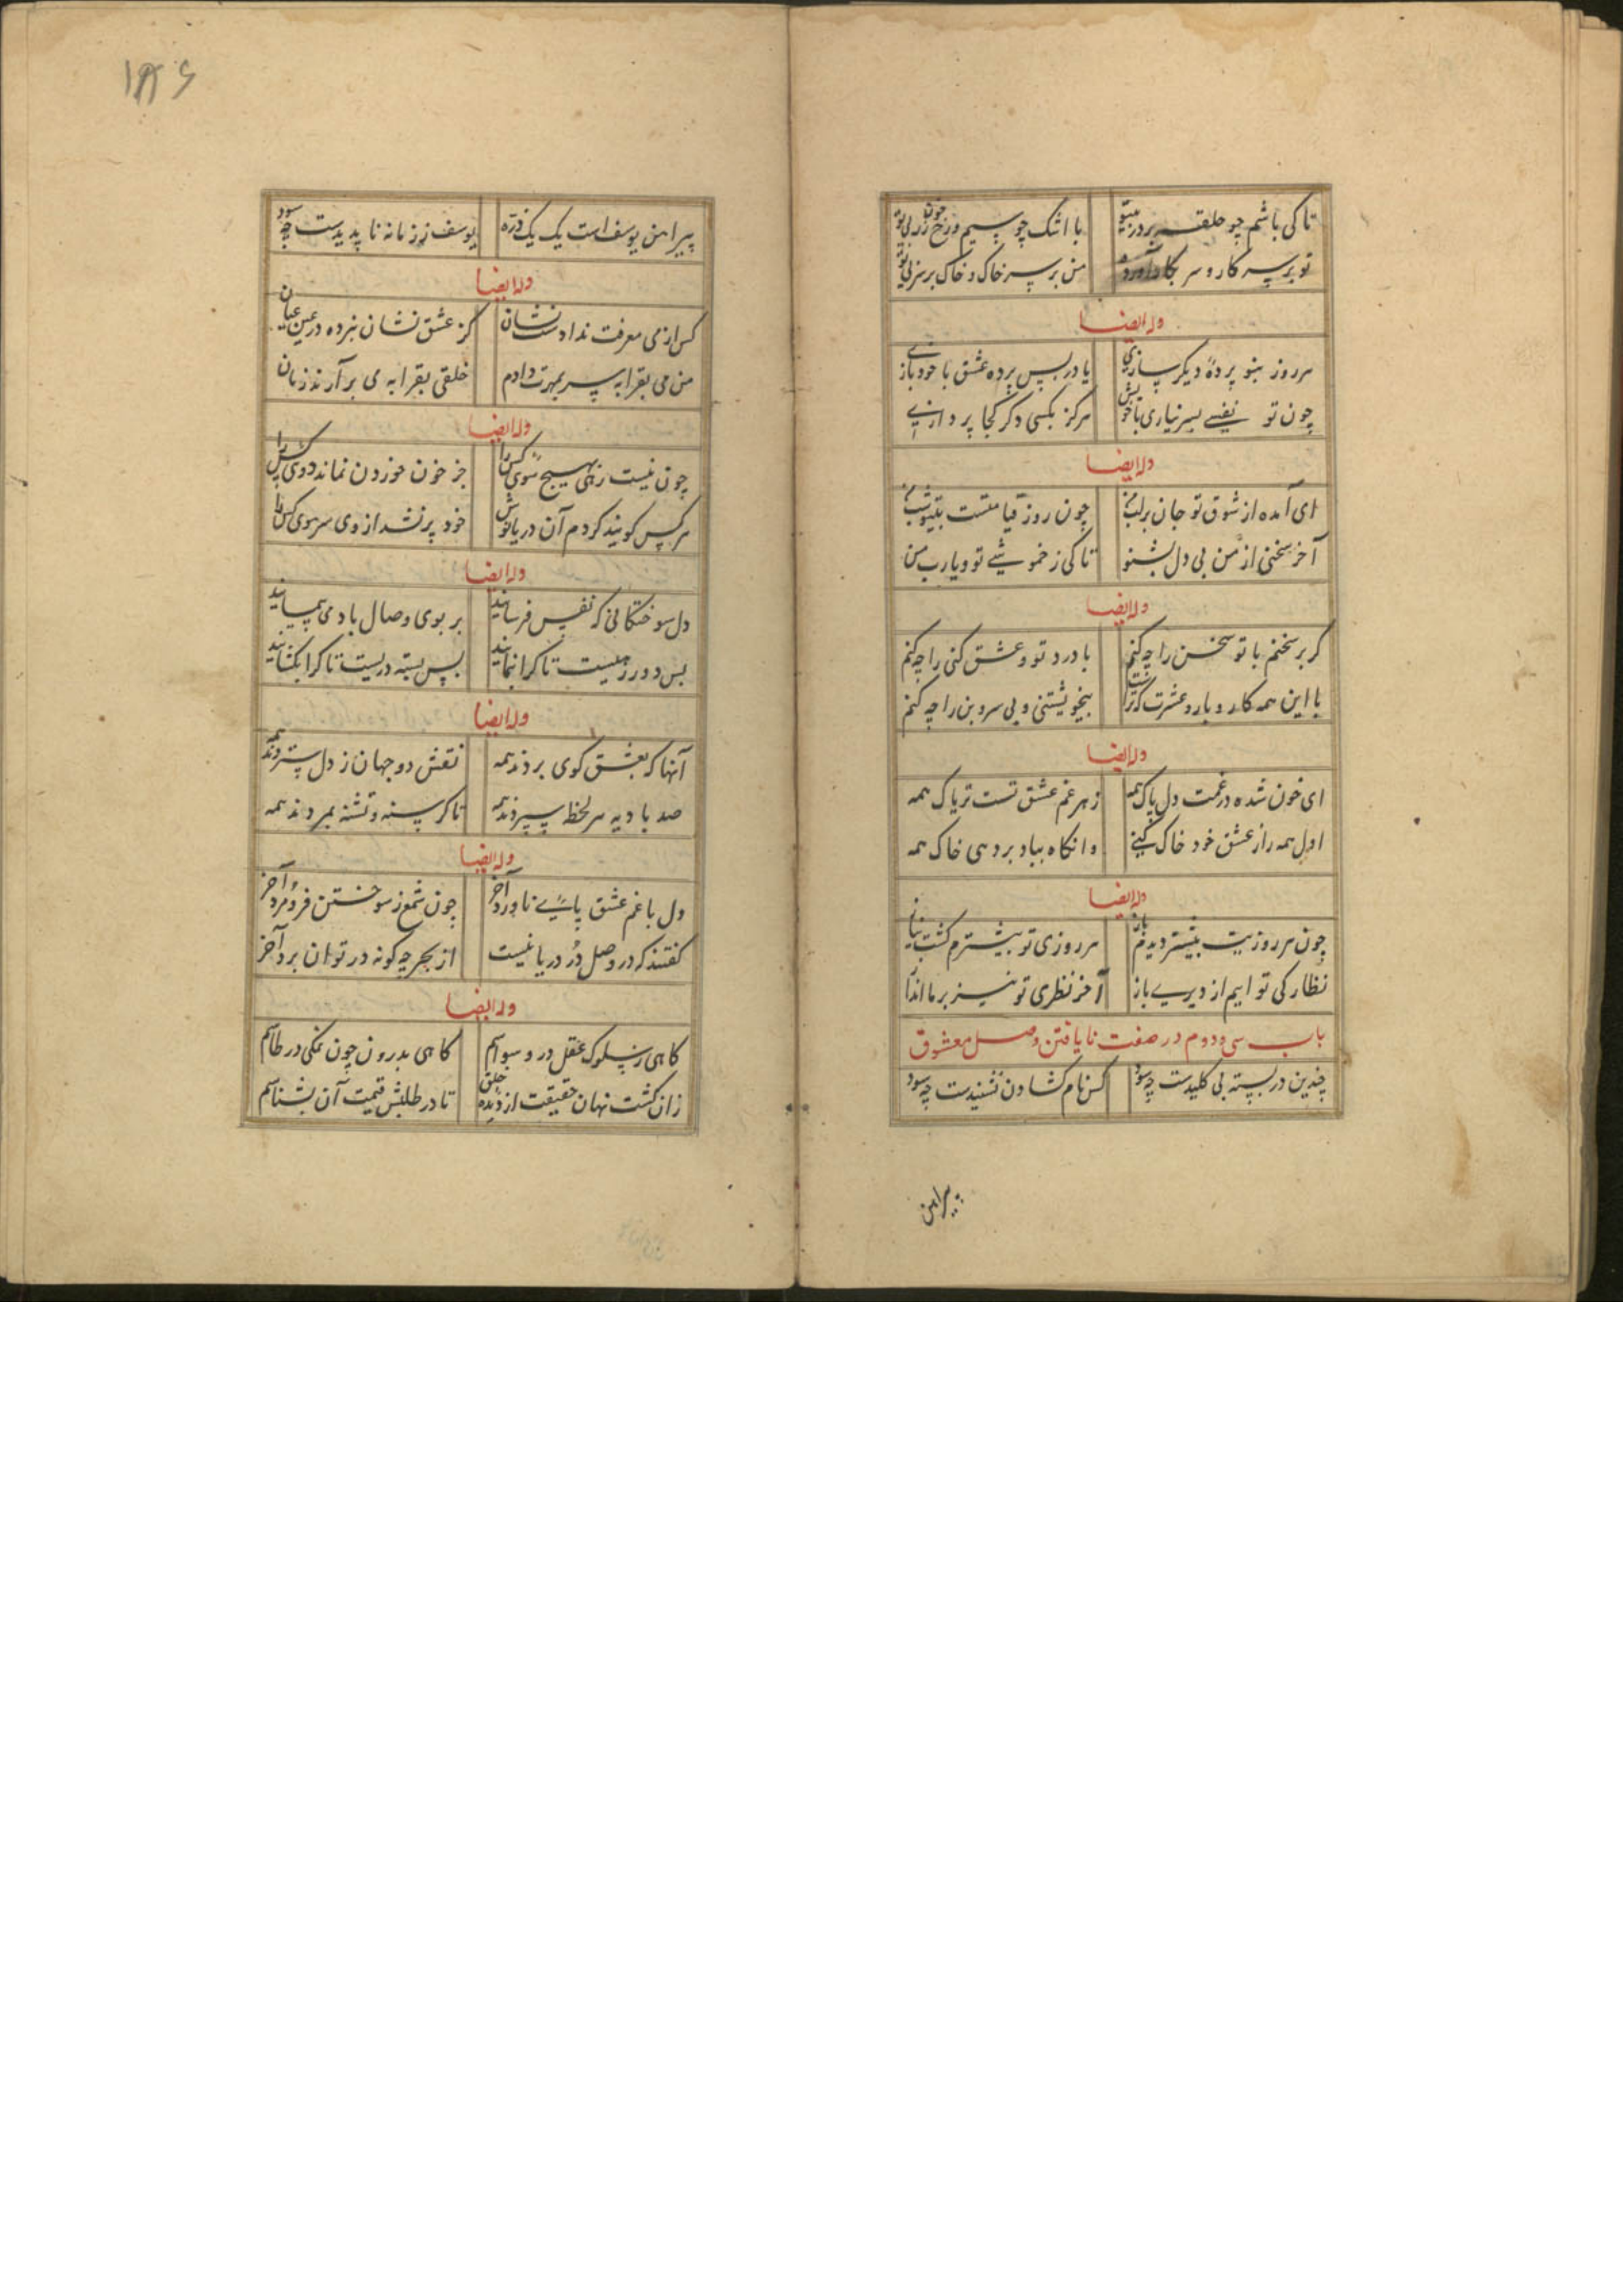 تا کی باشم چو حلقه بر در بیتو با اشک چو سیم و رخ چون زر بی تو
تو بر سر کار و سر بکار آورده من بر سر خاک و خاک بر سر بی تو
وله ایضا
هر روز بنو پردهٔ دیگر سازی یا در پس پرده عشق با خود بازی
چون تو نفسی بسر نیاری با خویش هرگز بکسی دگر کجا پردازی
وله ایضا
ای آمده از شوق تو جان بر لب من چون روز قیامتست بیتو شب من
آخر سخنی از من بی دل بشنو تا کی ز خموشی تو و یارب من
وله ایضا
گر بر سخنم با تو سخن را چه کنم با درد تو و عشق کنی را چه کنم
با این همه کار و بار و عشرت که تراست بیخویشتنی و بی سر و بن را چه کنم
وله ایضا
ای خون شده در غمت دل پاک همه زهر غم عشق تست تریاک همه
اول همه را ز عشق خود خاک کنی وانگاه بباد بر دهی خاک همه
وله ایضا
چون هر روزیت بیشتر دیدم باز هر روزی تو بیشترم گشت نیاز
نظارگی تو ایم از دیری باز آخر نظری تو نیز بر ما انداز
باب سی و دوم در صفت نا یافتن وصل معشوق
چندین در بسته بی کلیدست چه سود کس نام گشادن نشنیدست چه سود
پیراهن
۱۸۶
پیراهن یوسف است یک یک ذرّه یوسف ز زمانه نا پدیدست چه سود
وله ایضا
کس از می معرفت ندادست نشان کز عشق نشان نبرده در عین عیان
من می بقرابه سر بمهرت دادم خلقی بقرابه می بر آرند زبان
وله ایضا
چون نیست رهی هیچ سوی کس را جز خون خوردن نماند دوی کس را
هر کس گویند کردم آن دریا نوش خود پر نشد از وی سر موی کس را
وله ایضا
دل سوختگانی که نفس فرسایند بر بوی وصال باد می پیمایند
بس دور رهیست تا کرا بنمایند بس بسته دریست تا کرا بگشایند
وله ایضا
آنها که بعشق گوی بردند همه نقش دو جهان ز دل ستردند همه
صد بادیه هر لحظه سپردند همه تا گرسنه و تشنه بمردند همه
وله ایضا
دل با غم عشق پای ناورد آخر چون شمع ز سوختن فرو مرد آخر
گفتند که در وصل دُر دریا نیست از بحر چه گونه در توان برد آخر
وله ایضا
گاهی ز سلوک عقل در وسواسم گاهی بدرون چون نمکی در طاسم
زان گشت نهان حقیقت از دیده خلق تا در طلبش قیمت آن بشناسم